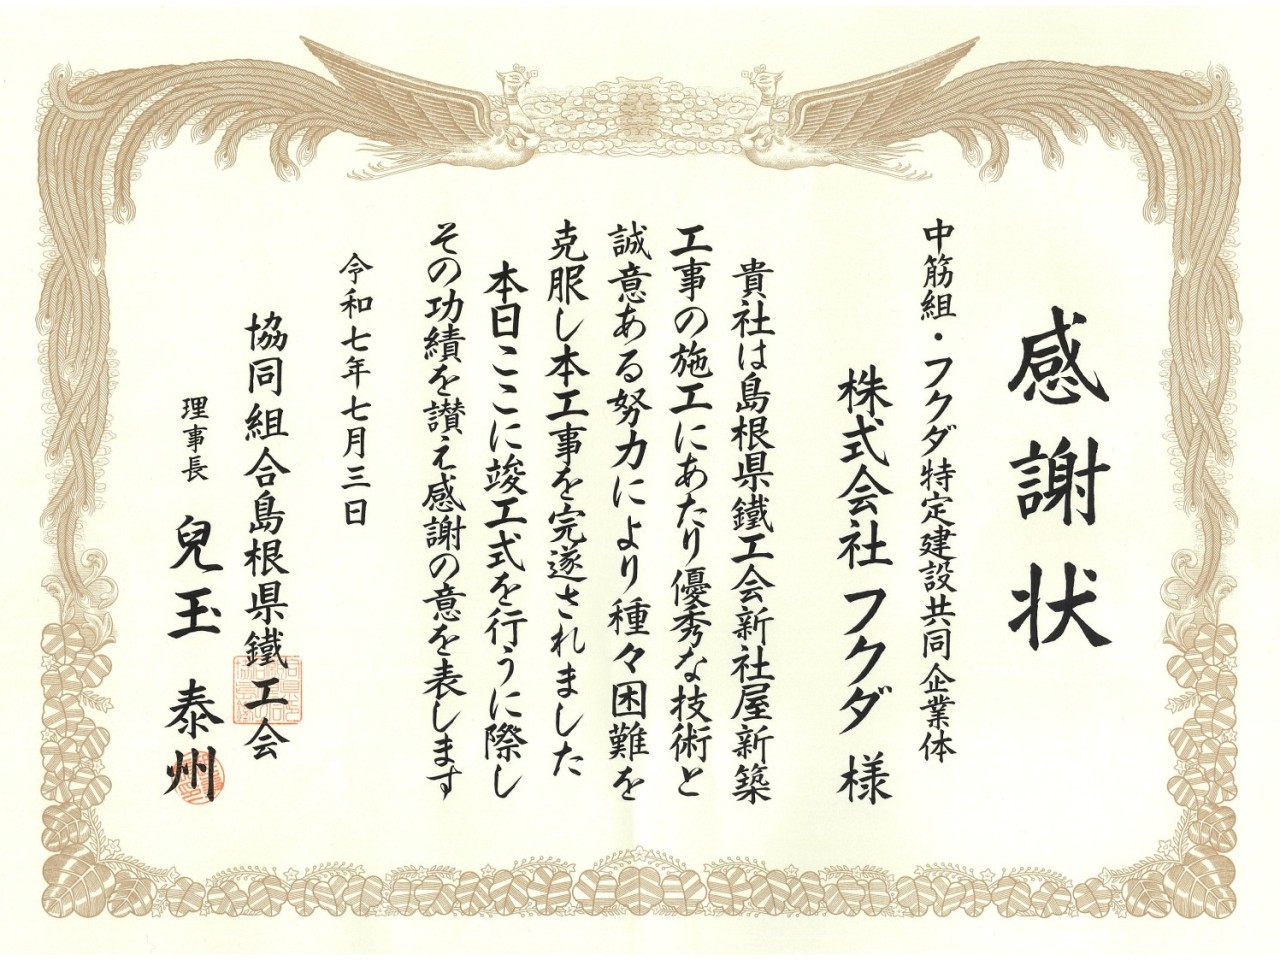 感謝状
中筋組・フクダ特定建設共同企業体
株式会社 フクダ 様
貴社は島根県鐵工会新社屋新築
工事の施工にあたり優秀な技術と
誠意ある努力により種々困難を
克服し本工事を完遂されました
本日ここに竣工式を行うに際し
その功績を讃え感謝の意を表します
令和七年七月三日
協同組合島根県鐵工会
理事長 兒玉 泰州